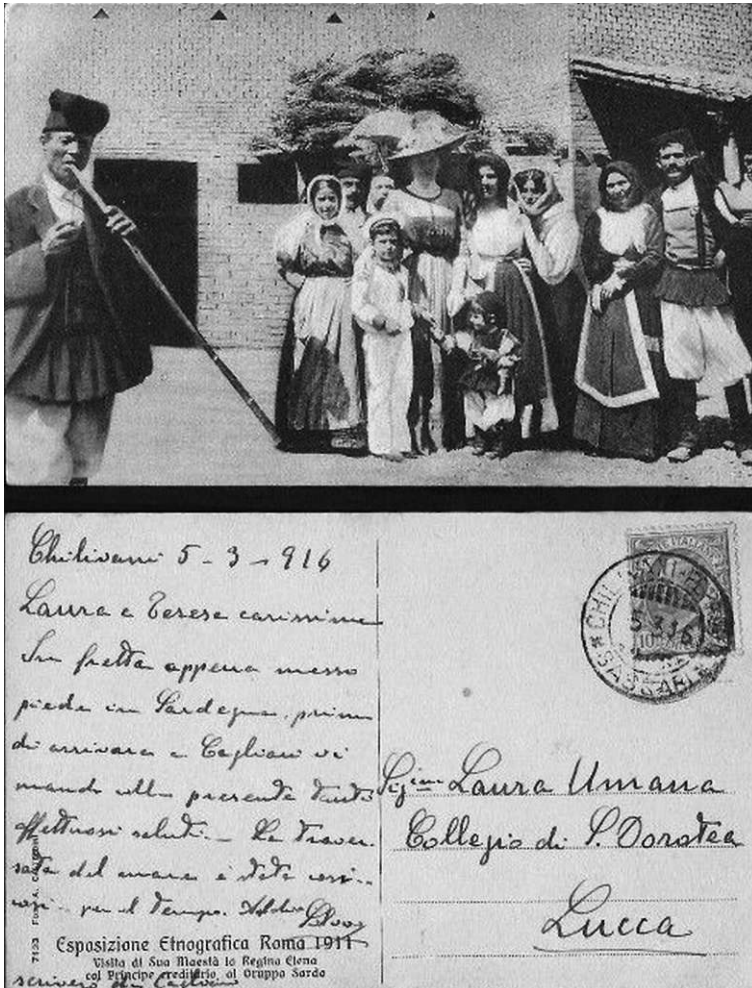 Chilivani 5-3-916
Laura e Teresa carissime
In fretta appena messo
piede in Sardegna, prima
di arrivare a Cagliari vi
mando colla presente tanti
affettuosi saluti. La traver-
sata del mare è stata così-
così per il tempo.
scriverò da Cagliari
7133
Esposizione Etnografica Roma 1911
Visita di Sua Maestà la Regina Elena
col Principe ereditario, al Gruppo Sardo
CHILIVANI
5.3.16
SASSARI
Sig.ine Laura Umana
Collegio di S. Dorotea
Lucca